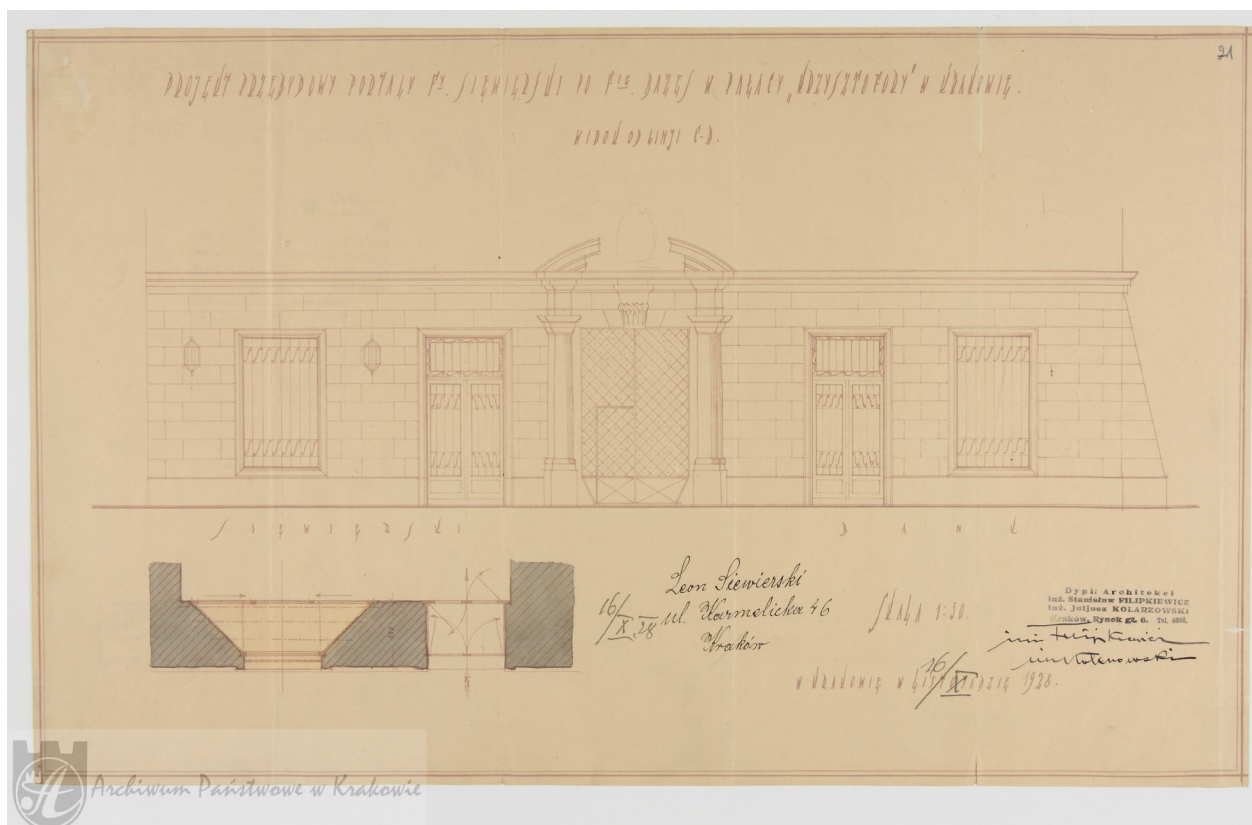 21
PROJEKT PRZEBUDOWY PORTALU FY. SIEWIERSKI PO FIE. BAZES W PAŁACU „KRZYSZTOFORY" W KRAKOWIE.
WIDOK OD LINJI C-D.
SIEWIERSKI
BANK
Leon Siewierski
16/X.28 ul. Karmelicka 46
Kraków
SKALA 1:50.
Dypl. Architekci
inż. Stanisław FILIPKIEWICZ
inż. Juljusz KOLARZOWSKI
Kraków, Rynek gł. 6. Tel.
inż Filipkiewicz
W KRAKOWIE W LISTOPADZIE 1928.
16/X
Archiwum Państwowe w Krakowie